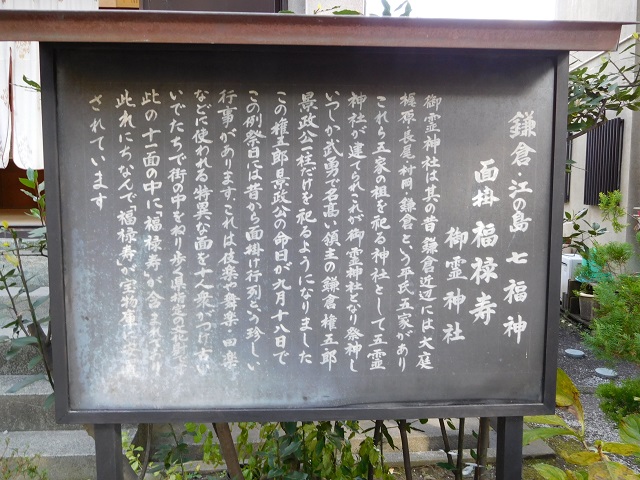 鎌倉・江の島 七福神
面掛 福禄寿
御霊神社
御霊神社は其の昔鎌倉近辺には大庭
梶原・長尾・村岡・鎌倉という平氏五家があり
これら五家の祖を祀る神社として五霊
神社が建てられこれが御霊神社となり祭神も
いつしか武勇で名高い領主の鎌倉権五郎
景政公一柱だけを祀るようになりました
この権五郎景政公の命日が九月十八日で
この例祭日には昔から面掛け行列という珍しい
行事があります、これは伎楽や舞楽・田楽
などに使われる特異な面を十人衆がつけ古い
いでたちで街の中をねり歩く県指定の文化財です
此の十一面の中に「福禄寿」が含まれており
此れにちなんで「福禄寿」が宝物庫に
されています